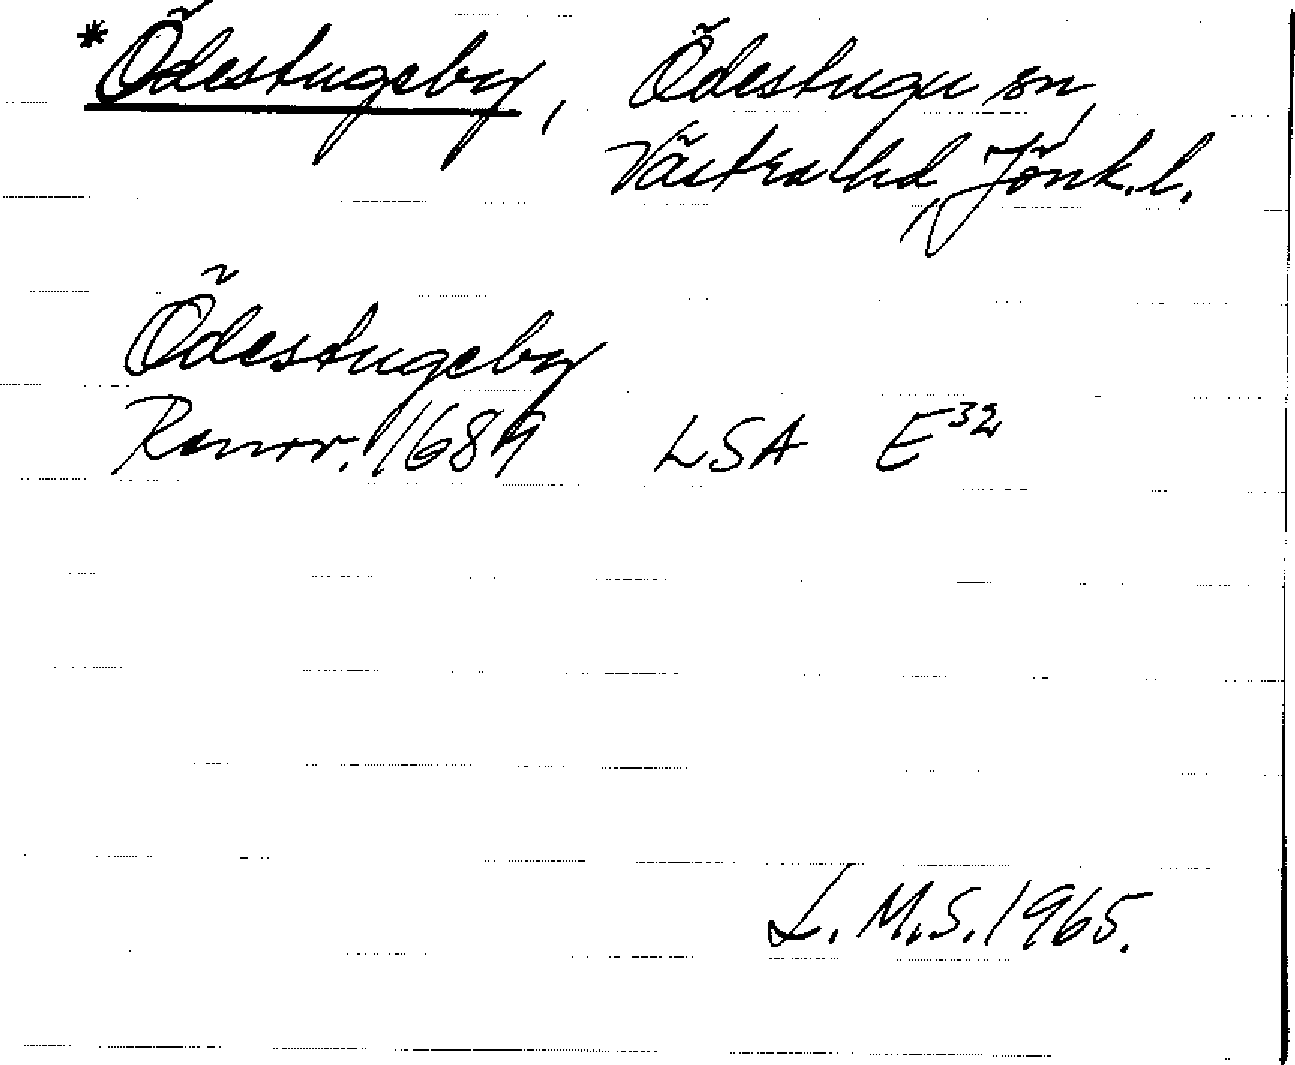 *Ödestugeby, Ödestugu sn,
Västra hd, Jönk.l.
Ödestugeby
Ranrv. 1689 LSA E³²
L. M.S. 1965.